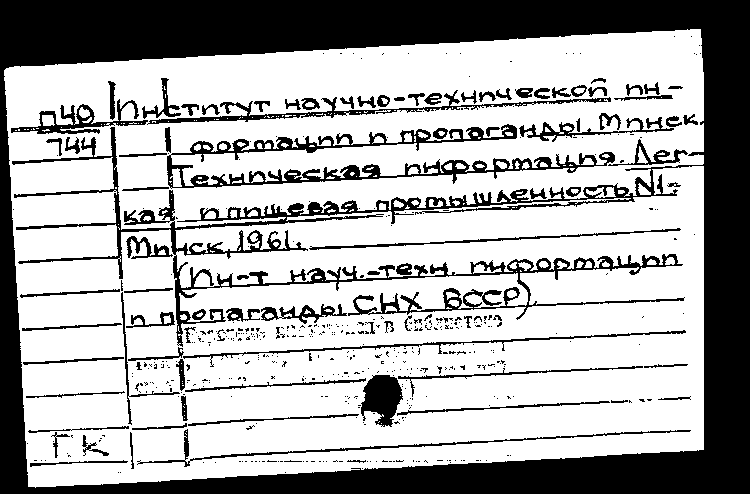 П40 Институт научно-технической ин-
744 формации и пропаганды. Минск.
Техническая информация. Лег-
кая и пищевая промышленность, N1-
Минск, 1961.
(Ин-т науч.-техн. информации
и пропаганды СНХ БССР)
в библиотеке
ГК